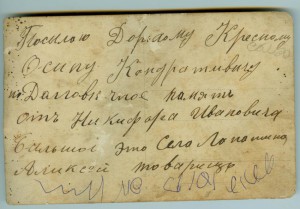 Посылаю Дорогому Кресному
Осипу Кондративичу
на Долговѣчное память
отъ Никифора Ивановича
Большое это Село Лопатино
Аликсей товарищь